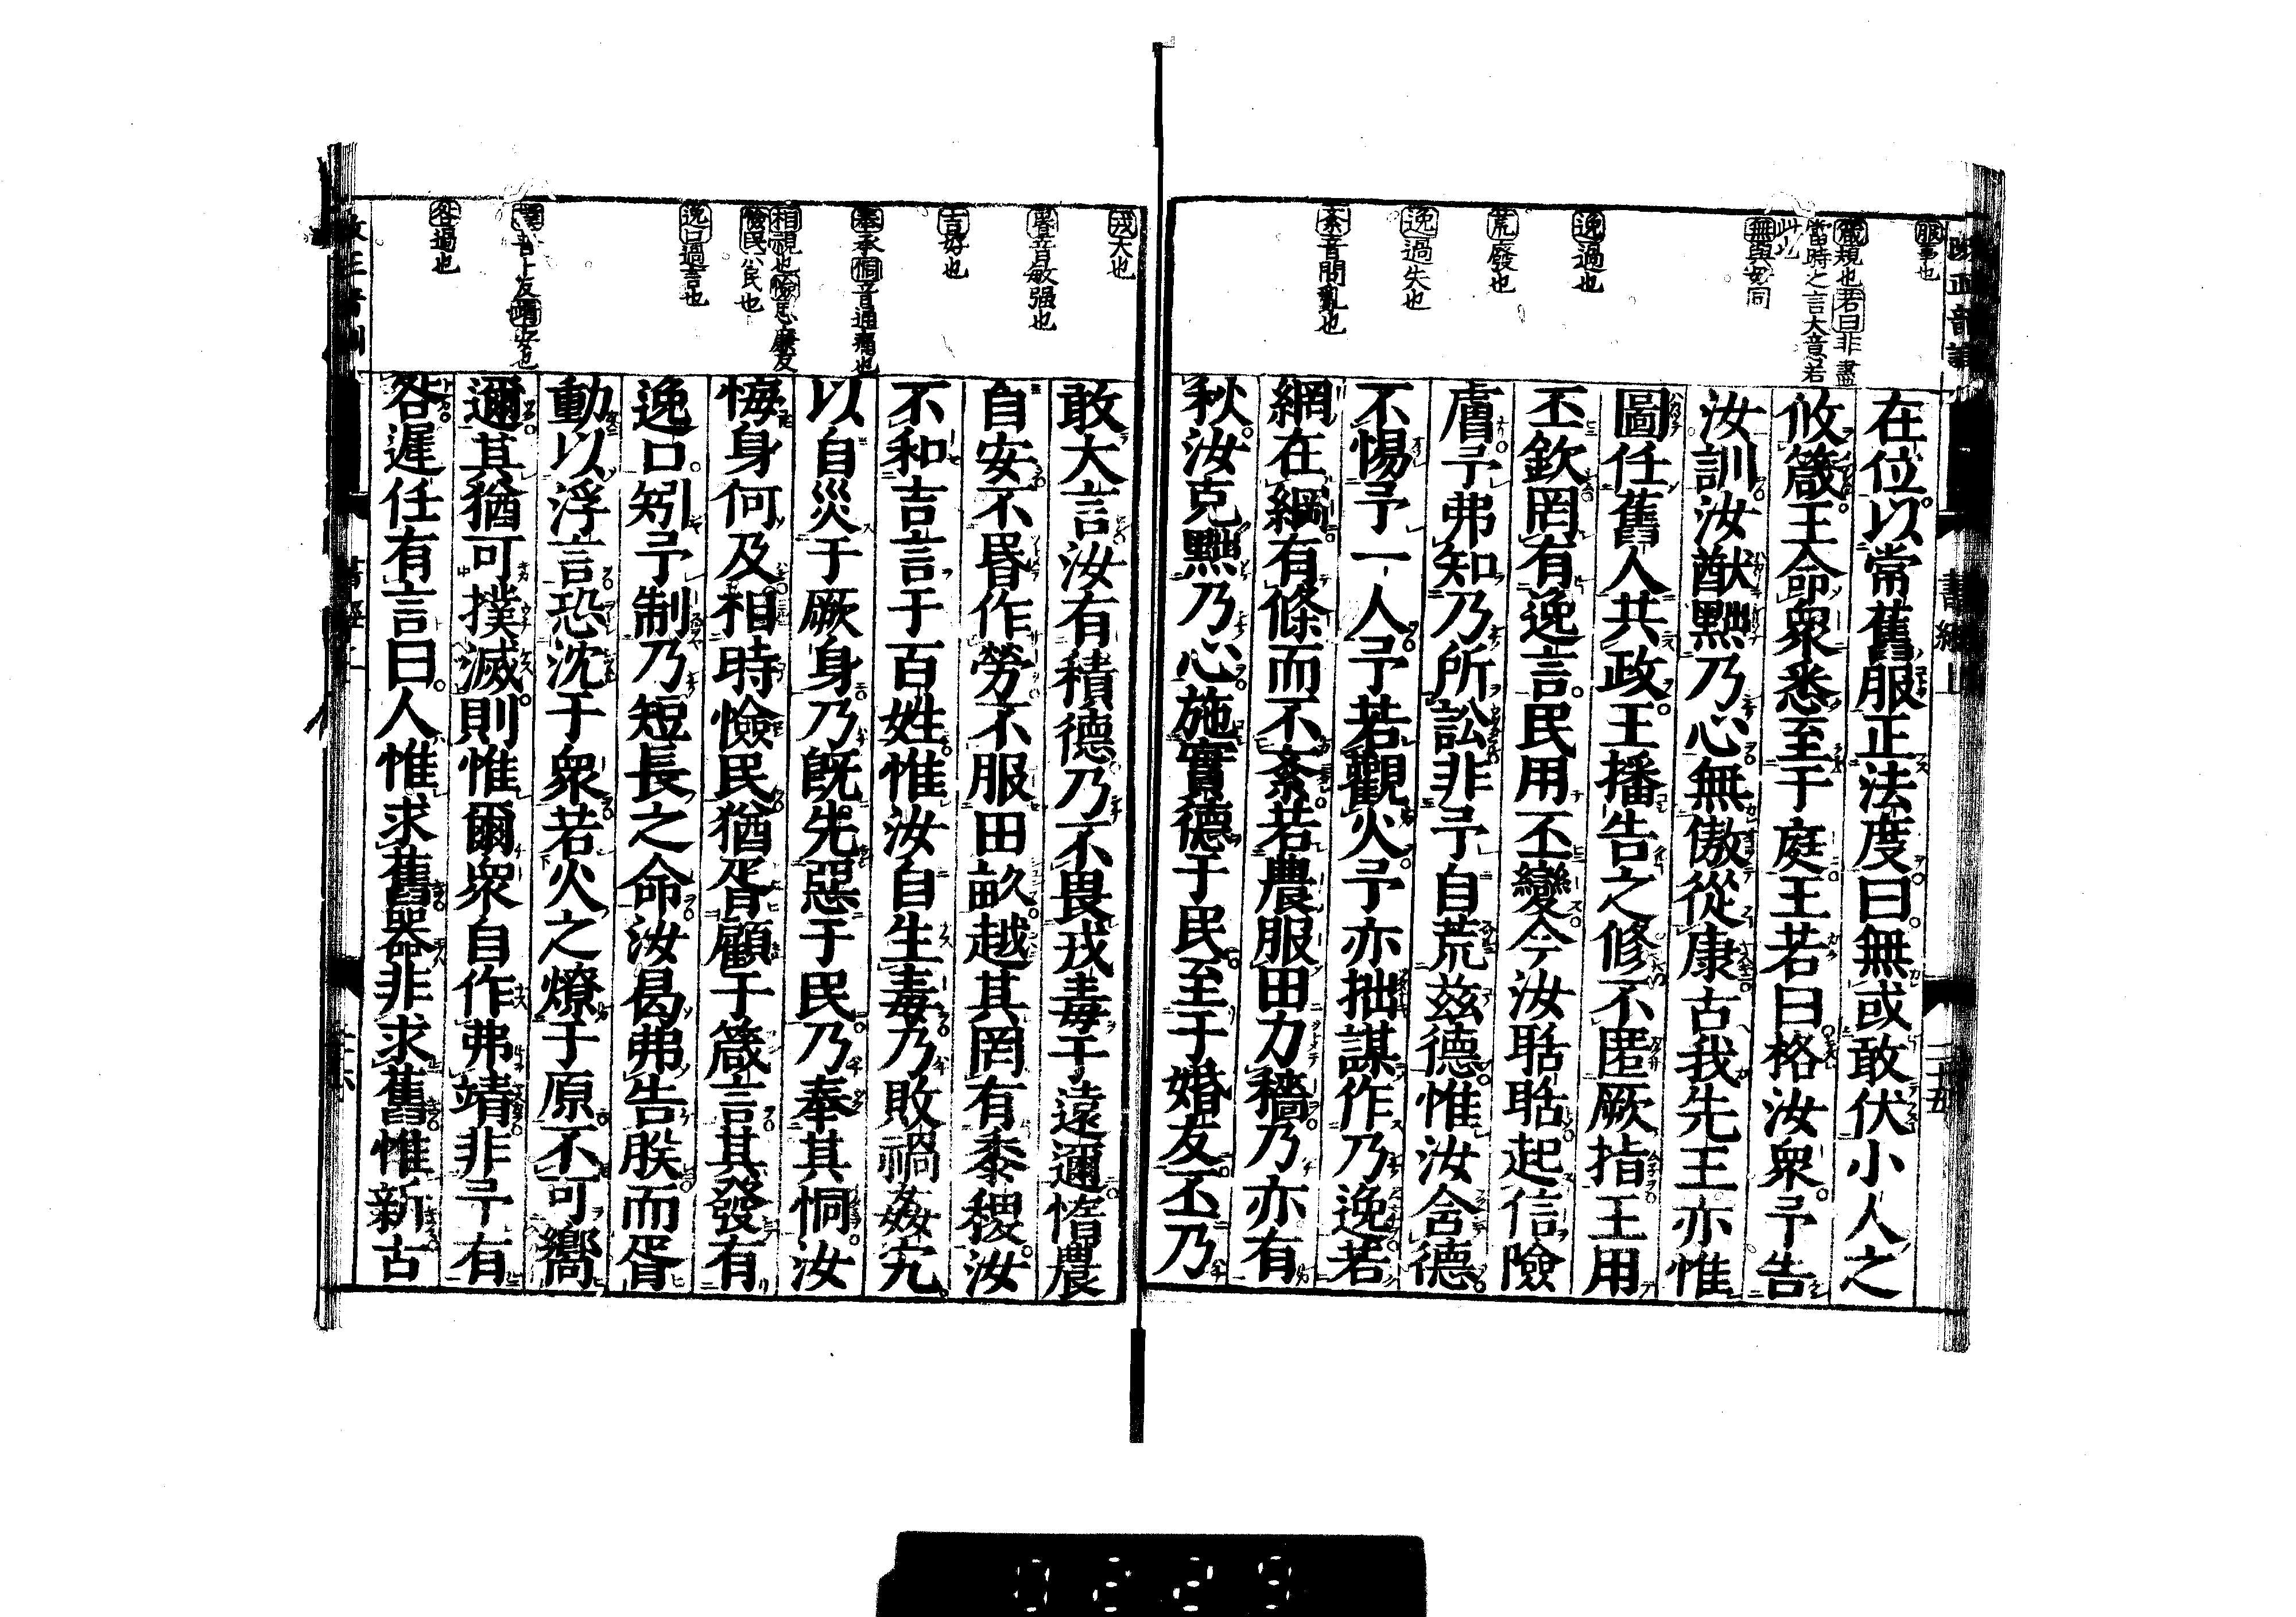 在位以常舊服正法度曰無或敢伏小人之
攸箴王命衆悉至于庭王若曰格汝衆予告
汝訓汝猷黜乃心無傲從康古我先王亦惟
圖任舊人共政王播告之修不匿厥指王用
丕欽罔有逸言民用丕變今汝聒聒起信險
膚予弗知乃所訟非予自荒茲德惟汝含德
不惕予一人予若觀火予亦拙謀作乃逸若
網在綱有條而不紊若農服田力穡乃亦有
秋汝克黜乃心施實德于民至于婚友丕乃
敢大言汝有積德乃不畏戎毒于遠邇惰農
自安不昬作勞不服田畝越其罔有黍稷汝
不和吉言于百姓惟汝自生毒乃敗禍姦宄
以自災于厥身乃既先惡于民乃奉其恫汝
悔身何及相時憸民猶胥顧于箴言其發有
逸口矧予制乃短長之命汝曷弗告朕而胥
動以浮言恐沈于衆若火之燎于原不可嚮
邇其猶可撲滅則惟爾衆自作弗靖非予有
咎遲任有言曰人惟求舊器非求舊惟新古
服事也
箴規也若曰非盡
當時之言大意若
此也
無與毋同
逸過也
荒廢也
逸過失也
紊音問亂也
戎大也
昬音敏强也
吉好也
奉承恫音通痛也
相視也憸息廉反
憸民小民也
逸口過言也
咎過也
二十五
0229